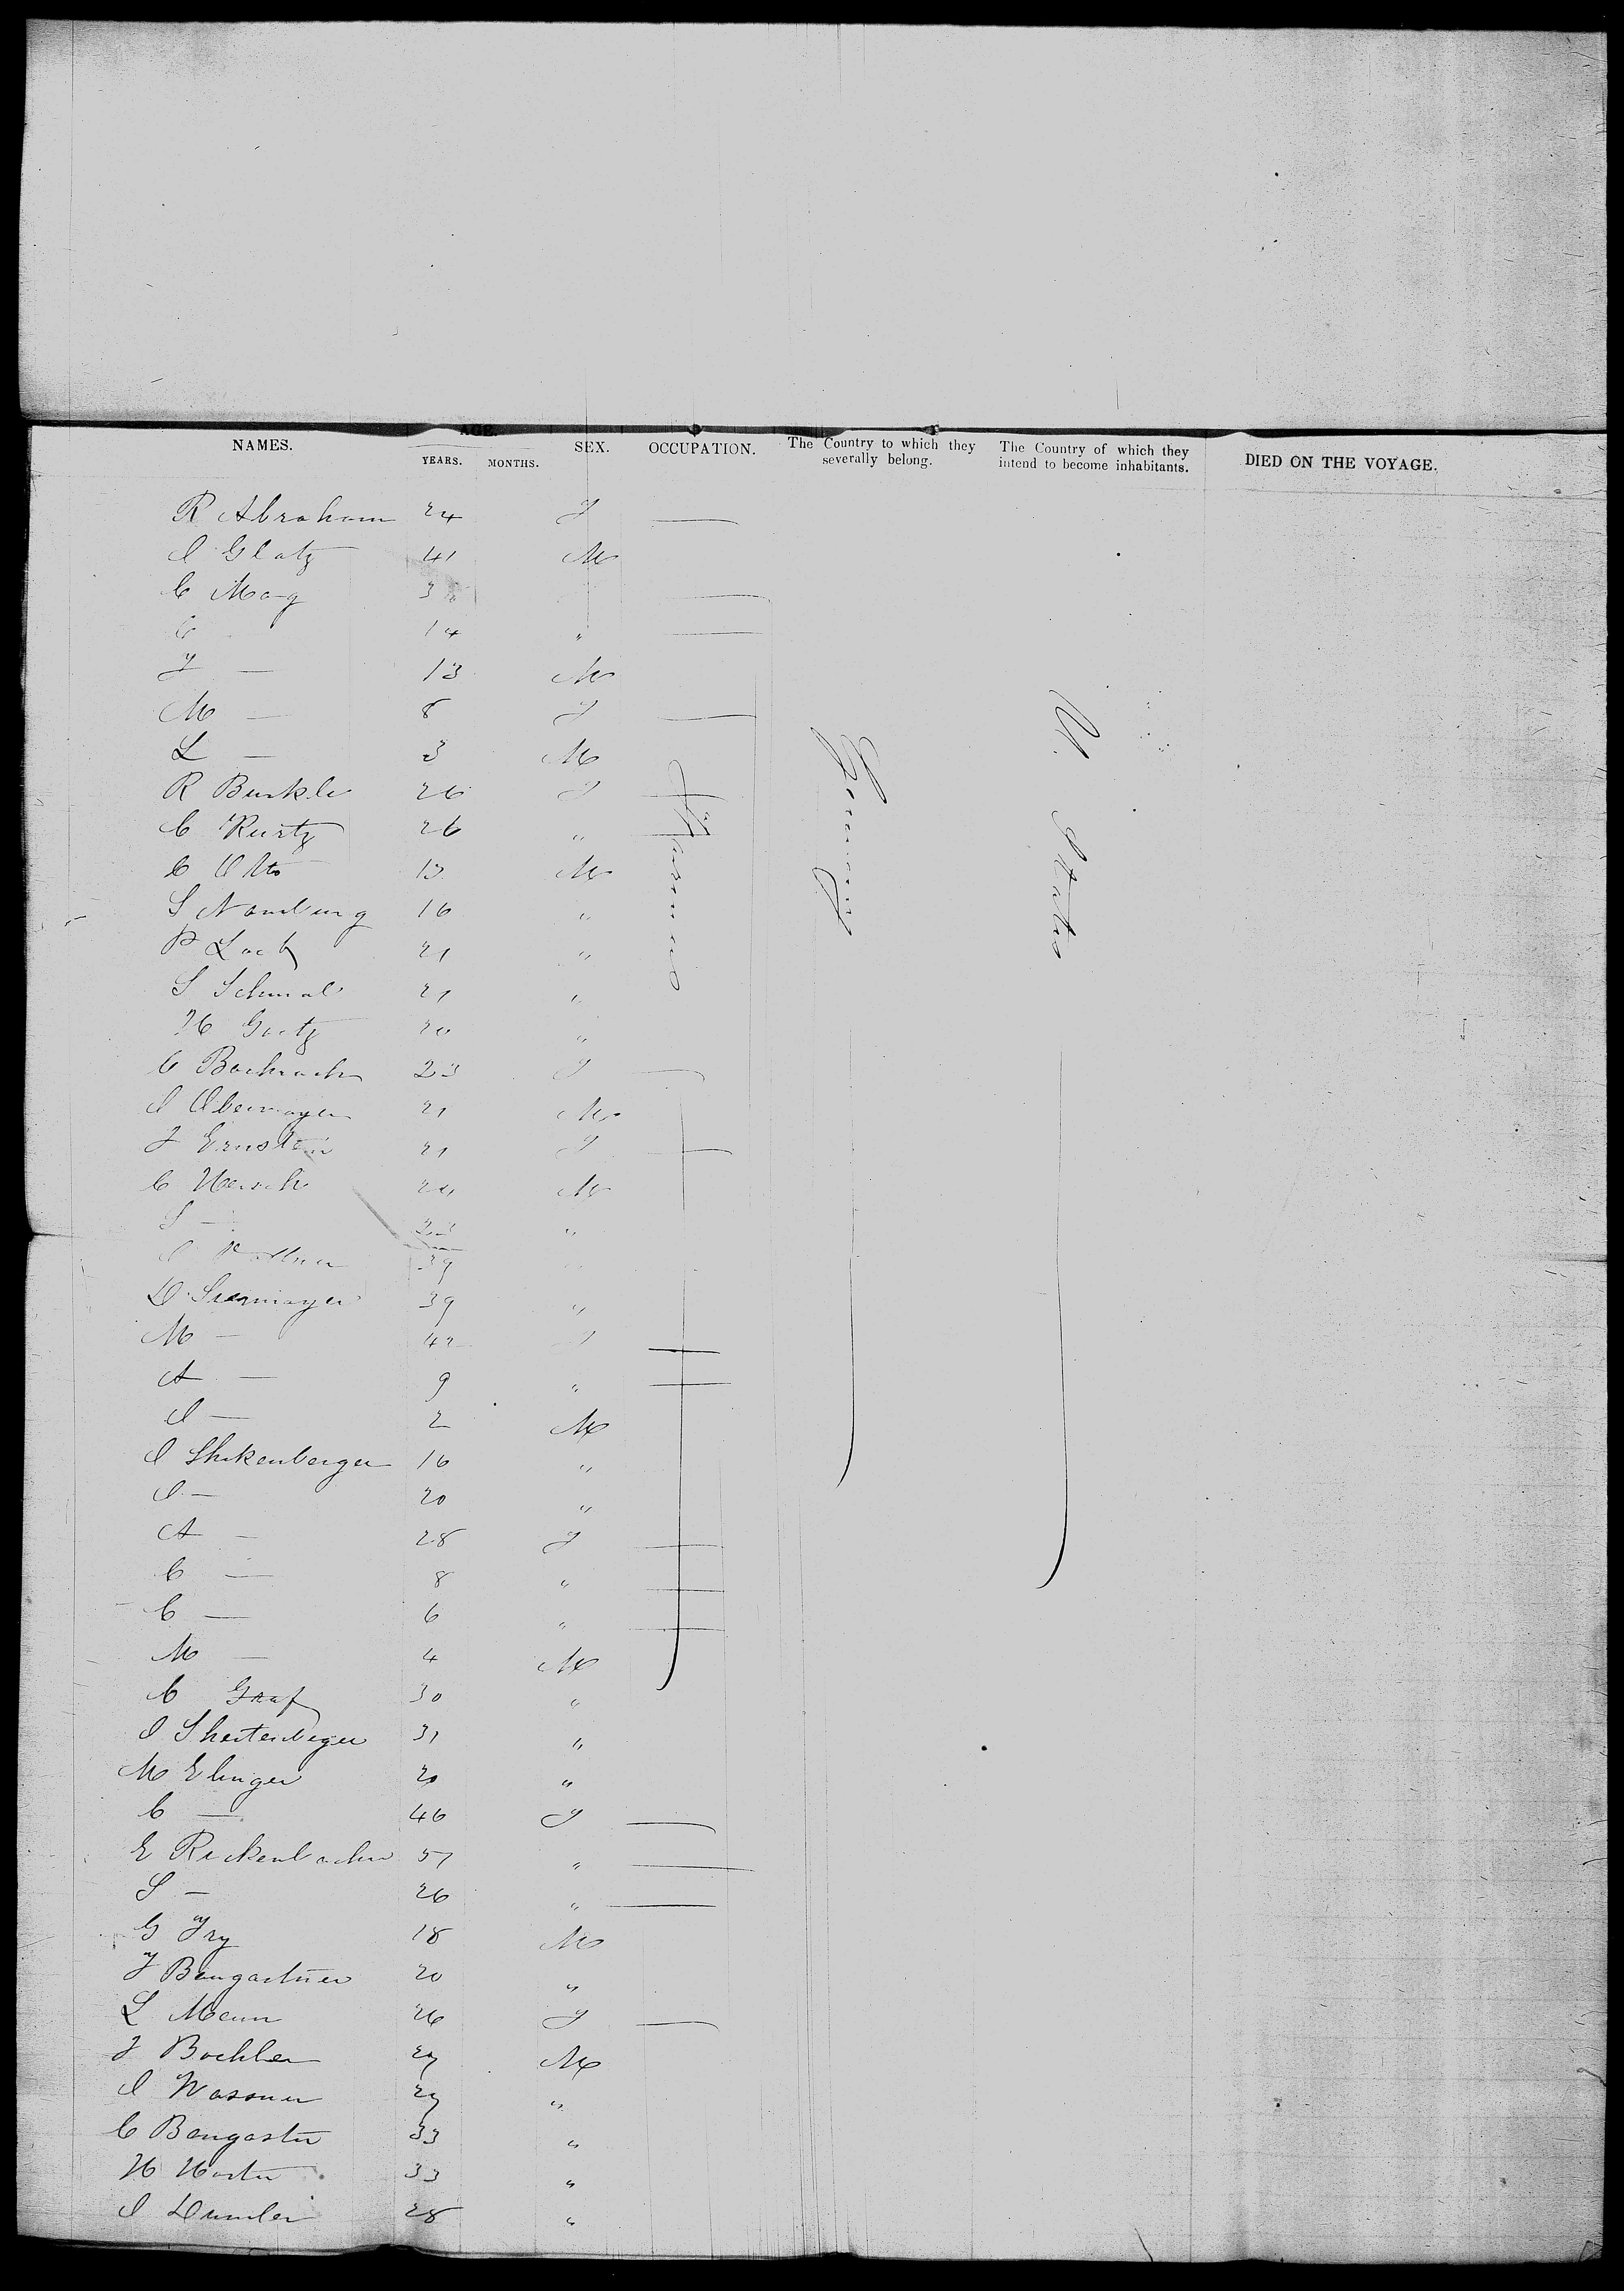 NAMES. AGE. YEARS. MONTHS. SEX. OCCUPATION. The Country to which they severally belong. The Country of which they intend to become inhabitants. DIED ON THE VOYAGE.
R Abraham 24 F —
I Glatz 41 M
C May 3 —
C 14 " —
F — 13 M
M — 8 F —
L — 3 M
R Burkle 26 F —
C Kurtz 26 " —
C Otto 13 M
S Namburg 16 "
P Lach 21 "
S Schmal 21 "
H Goetz 20 "
C Bachrach 23 F —
I Obermayer 21 M
F Ernstein 21 F —
C Hersch 24 M
S — 23 "
39
D Seemayer 39 "
M — 42 F —
A — 9 " —
I — 2 M
I Shikenberger 16 "
I — 20 "
A — 28 F —
C — 8 " —
C — 6 " —
M — 4 M
C Graf 30 "
I Shertenleger 31 "
M Elinger 20 "
C — 46 F —
E Rickenbacher 57 " —
S — 26 " —
G Fry 18 M
F Baugartner 20 "
L Menn 26 F —
F Bochler 27 M
I Wassner 27 "
C Baugarter 33 "
H Harter 33 "
I Dumler 28 "
Farmers
Germany
U. States